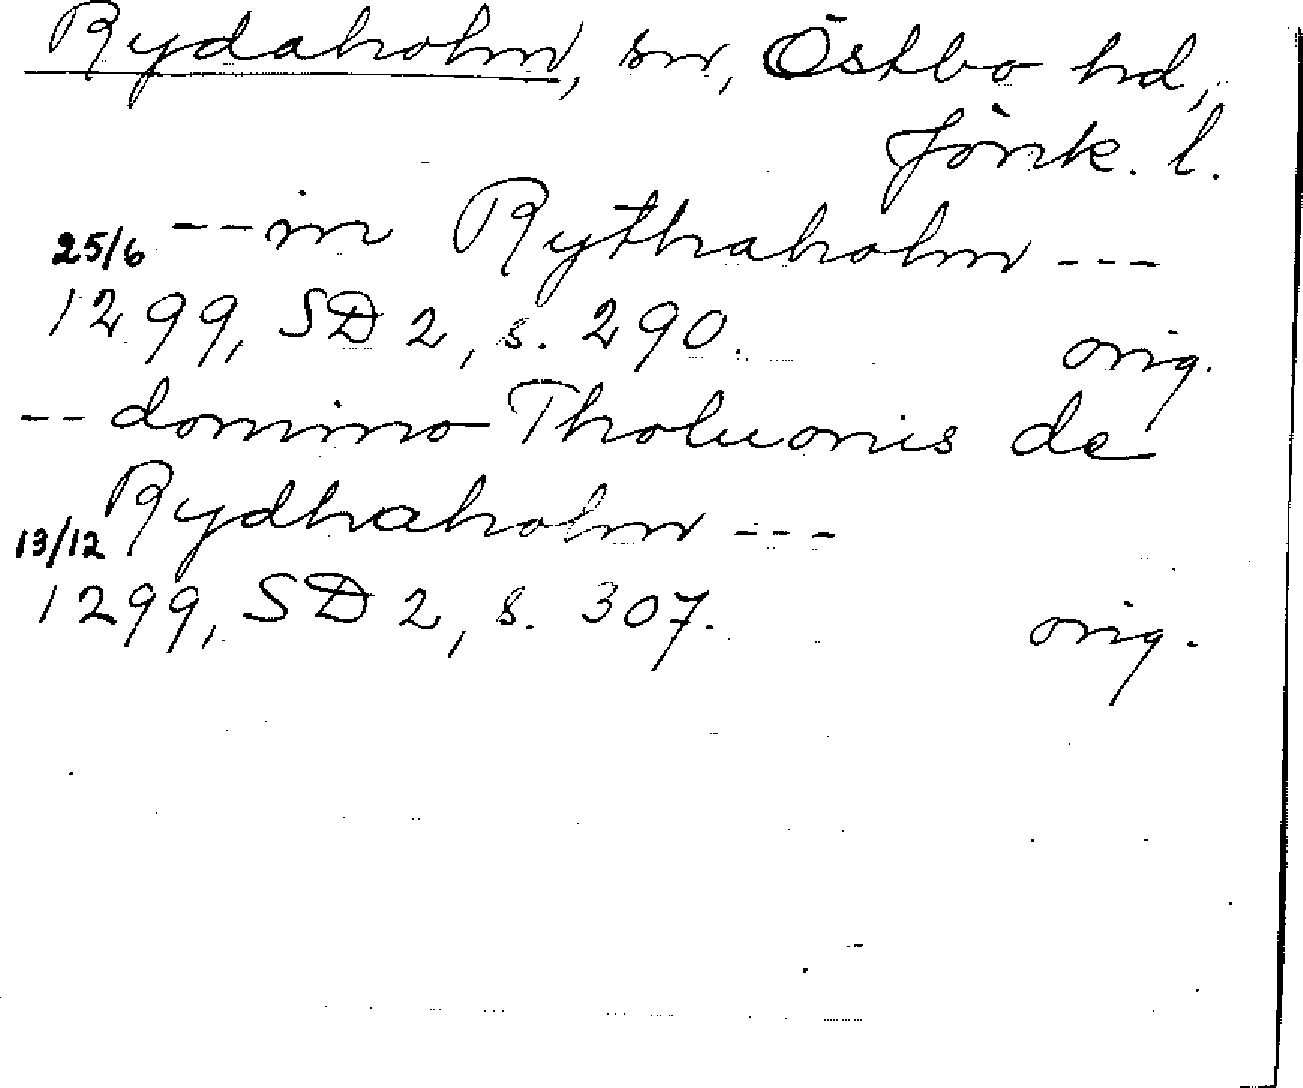 Rydaholm, sn, Östbo hd,
Jönk. l.
25/6 -- in Rythaholm ---
1299, SD 2, s. 290. orig.
-- domino Tholuonis de
13/12 Rydhaholm ---
1299, SD 2, s. 307. orig.